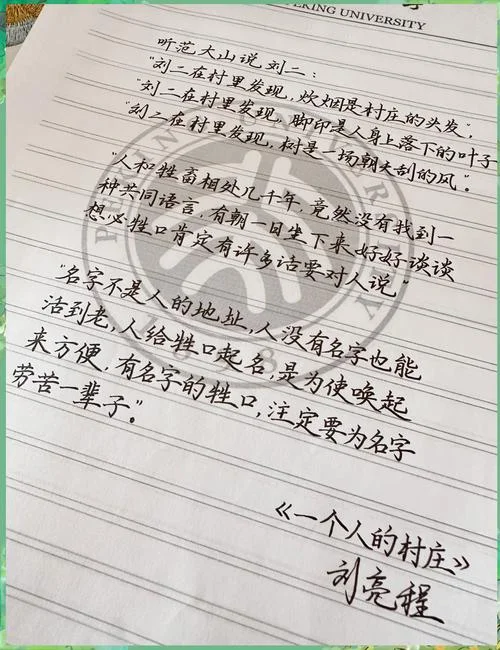 KING UNIVERSITY
听范大山说刘二:
"刘二在村里发现,炊烟是村庄的头发",
"刘二在村里发现,脚印是人身上落下的叶子
"刘二在村里发现,树是一场朝天刮的风"。
"人和牲畜相处几千年,竟然没有找到一
种共同语言,有朝一日坐下来好好谈谈
想必牲口肯定有许多话要对人说"
"名字不是人的地址,人没有名字也能
活到老,人给牲口起名,是为使唤起
来方便,有名字的牲口,注定要为名字
劳苦一辈子"。
《一个人的村庄》
刘亮程